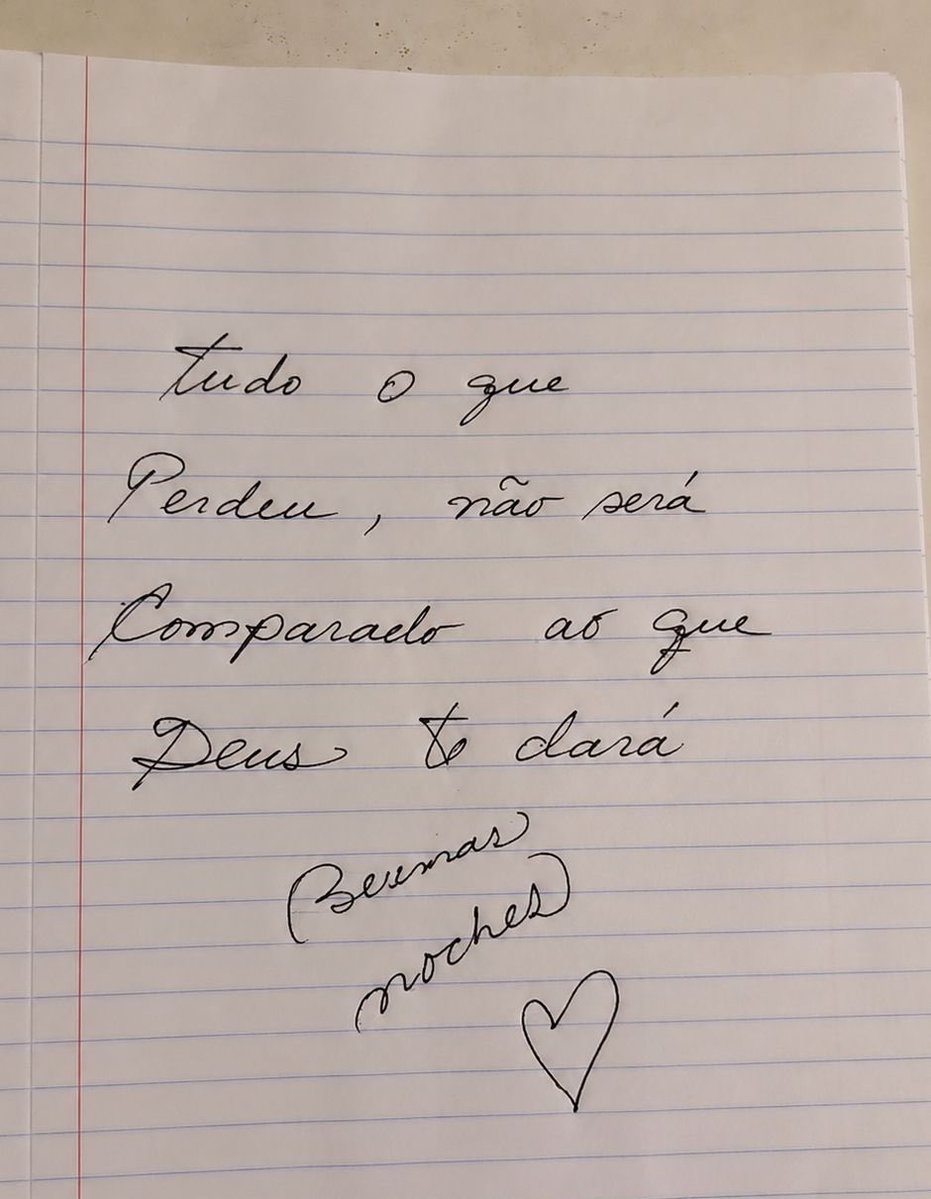 tudo o que
Perdeu, não será
Comparado ao que
Deus te dará
Buenas
noches